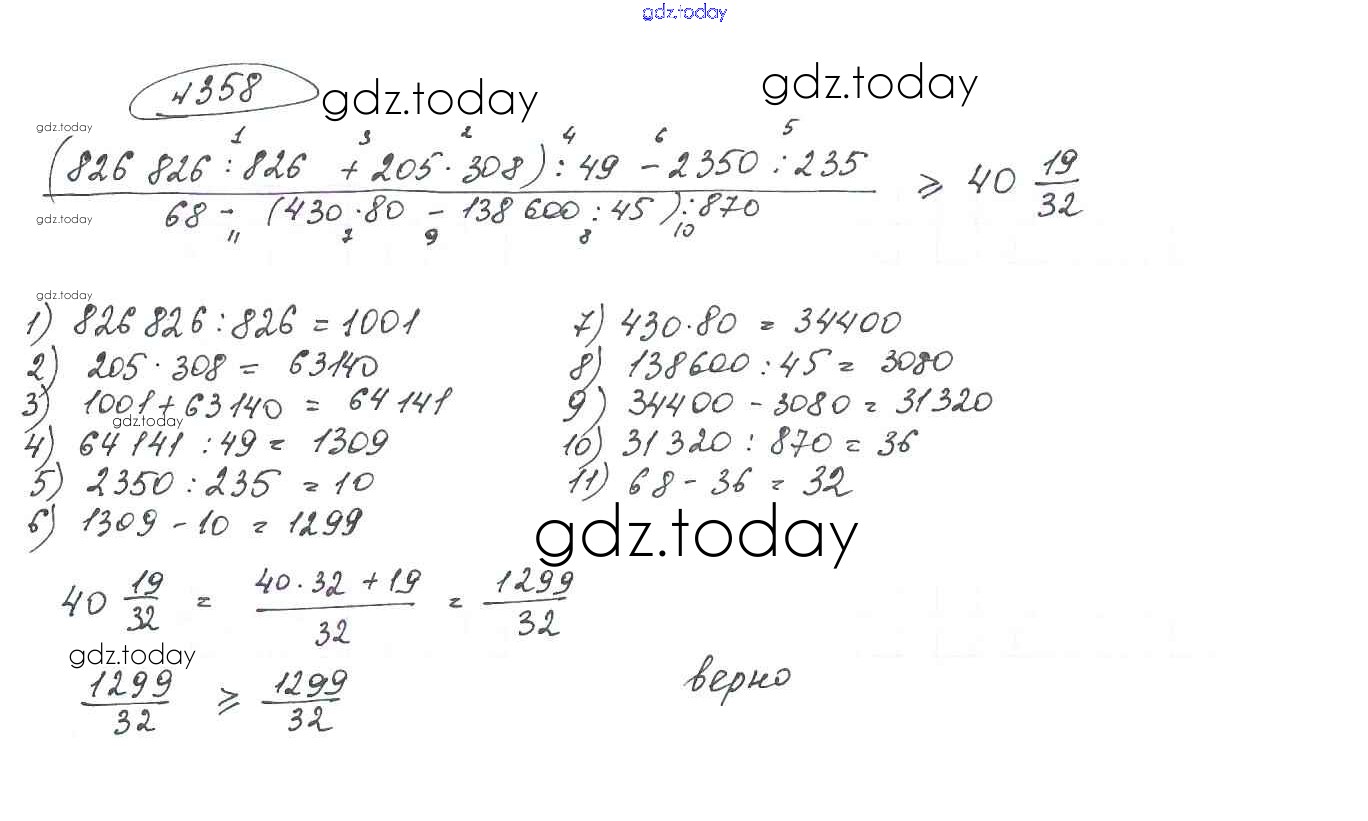 gdz.today
№358 gdz.today gdz.today
gdz.today
1 3 2 4 6 5
(826 826 : 826 + 205 · 308) : 49 - 2350 : 235
68 - (430 · 80 - 138 600 : 45) : 870
≥ 40 19/32
gdz.today
11 7 9 8 10
gdz.today
1) 826 826 : 826 = 1001
2) 205 · 308 = 63140
3) 1001 + 63140 = 64141
gdz.today
4) 64141 : 49 = 1309
5) 2350 : 235 = 10
6) 1309 - 10 = 1299
7) 430 · 80 = 34400
8) 138600 : 45 = 3080
9) 34400 - 3080 = 31320
10) 31320 : 870 = 36
11) 68 - 36 = 32
gdz.today
40 19/32 = (40 · 32 + 19)/32 = 1299/32
gdz.today
1299/32 ≥ 1299/32 верно